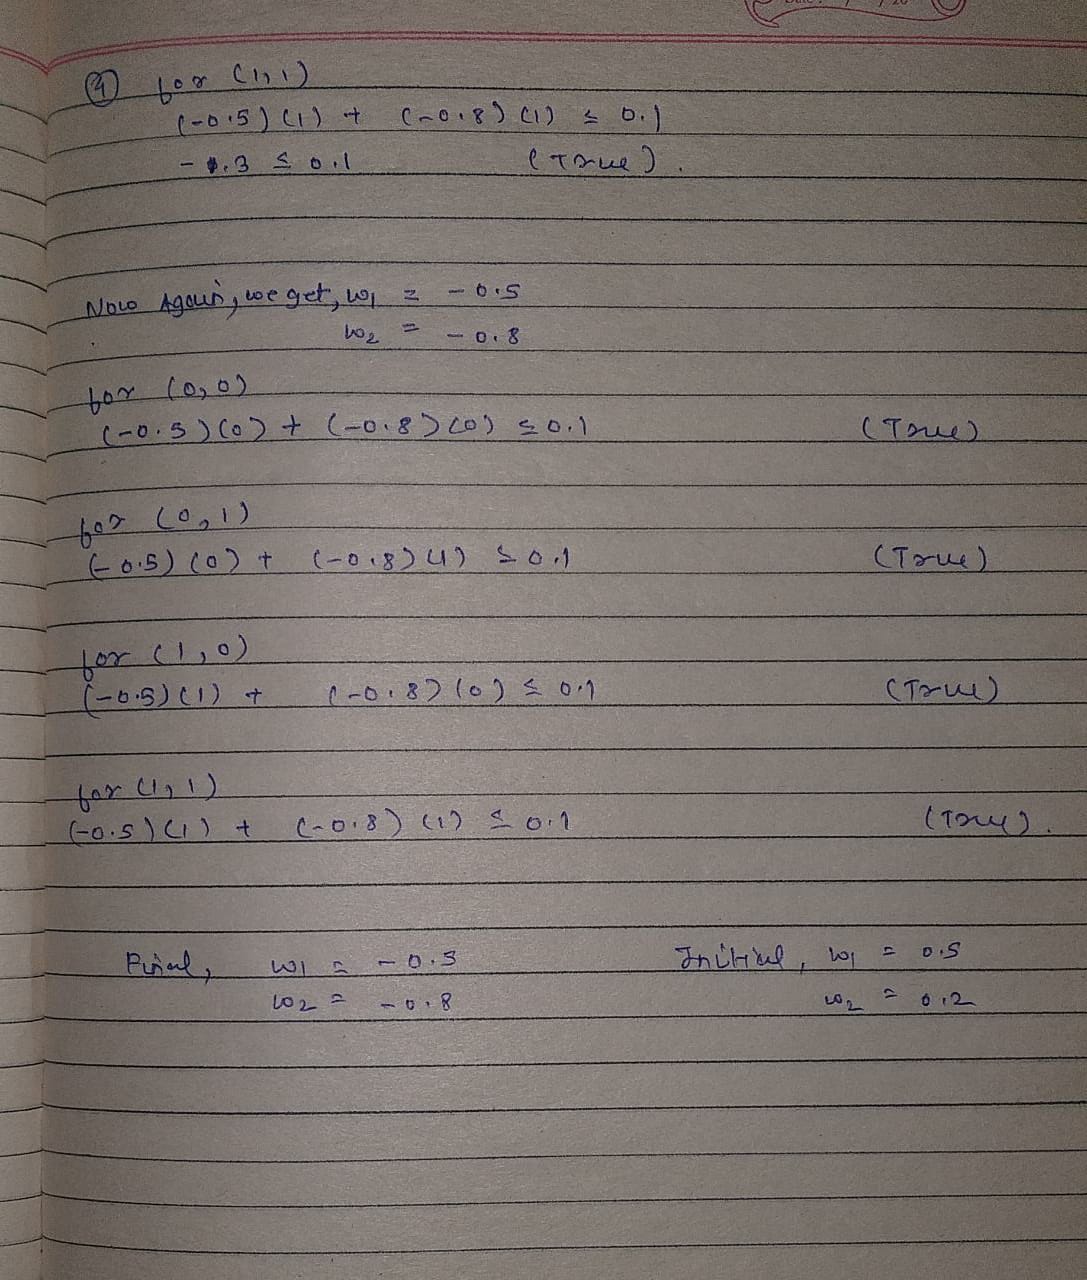 ④ for (1,1)
(-0.5)(1) + (-0.8)(1) ≤ 0.1
-1.3 ≤ 0.1 (True).
Now Again, we get, w1 = -0.5
w2 = -0.8
for (0,0)
(-0.5)(0) + (-0.8)(0) ≤ 0.1 (True)
for (0,1)
(-0.5)(0) + (-0.8)(1) ≤ 0.1 (True)
for (1,0)
(-0.5)(1) + (-0.8)(0) ≤ 0.1 (True)
for (1,1)
(-0.5)(1) + (-0.8)(1) ≤ 0.1 (True).
Final, w1 = -0.5 Initial, w1 = 0.5
w2 = -0.8 w2 = 0.2